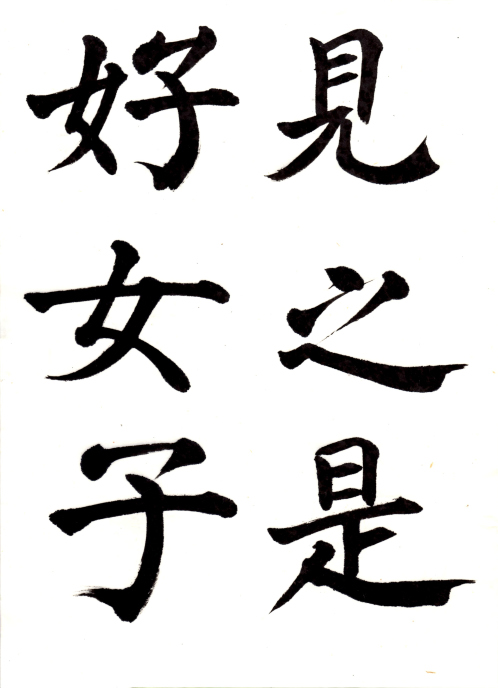 見之是
好女子